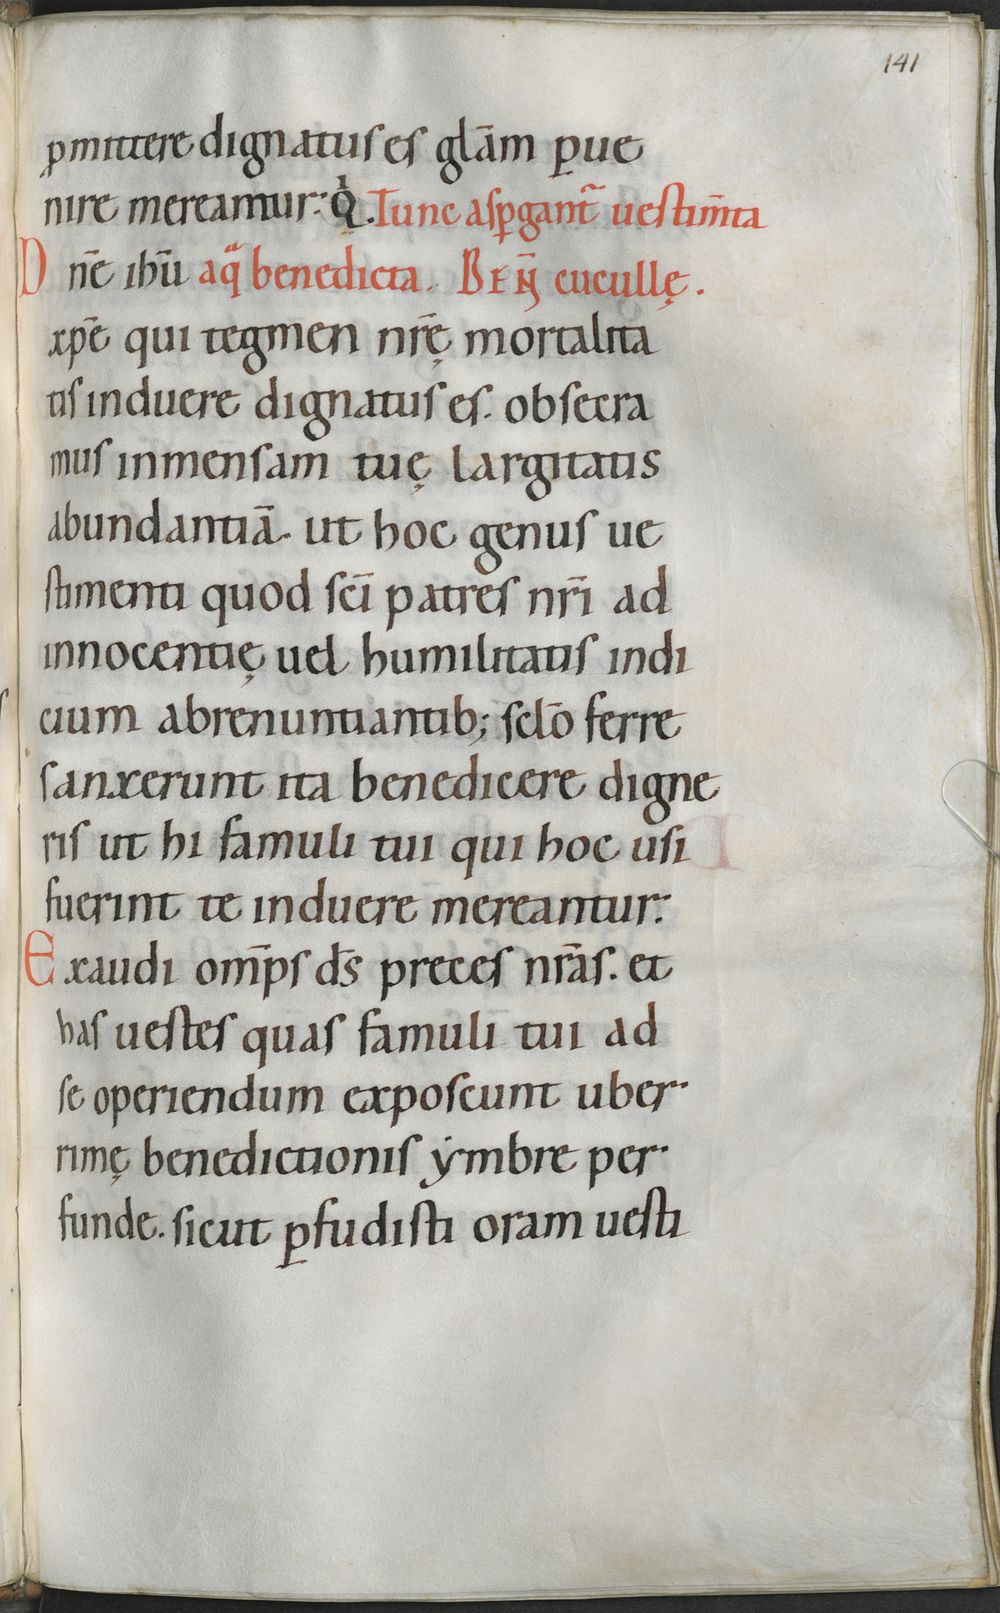 141
ꝓmittere dignatus es glām ꝑue
nire mereamur: Q̇. Tunc asꝑgant᷑ uestim̄ta
D nē ihū aq̄ benedicta. BEN̄ cucullę.
xp̄e qui tegmen nr̄ę mortalita
tis induere dignatus es. obsecra
mus inmensam tuę largitatis
abundantiā. ut hoc genus ue
stimenti quod sc̄i patres nr̄i ad
innocentię uel humilitatis indi
cium abrenuntiantib; sc̄lo ferre
sanxerunt ita benedicere digne
ris ut hi famuli tui qui hoc usi
fuerint te induere mereantur:
Exaudi om̄ps d̄s preces nr̄as. et
has uestes quas famuli tui ad
se operiendum exposcunt uber
rimę benedictionis ẏmbre per
funde. sicut ꝑfudisti oram uesti